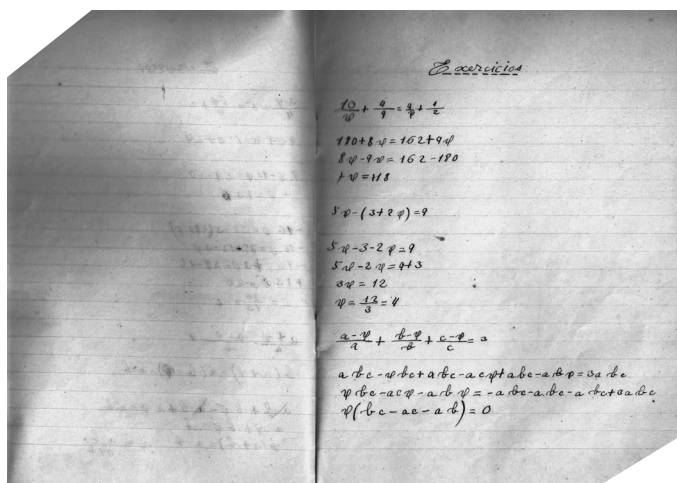 Exercicios
10/φ + 4/9 = 9/φ + 1/2
180+8φ=162+9φ
8φ-9φ=162-180
+φ=+18
5φ-(3+2φ)=9
5φ-3-2φ=9
5φ-2φ=9+3
3φ=12
φ=12/3=4
a-φ/a + b-φ/b + c-φ/c = 3
abc-φbc+abc-acφ+abc-abφ=3abc
φbc-acφ-abφ=-abc-abc-abc+3abc
φ(bc-ac-ab)=0